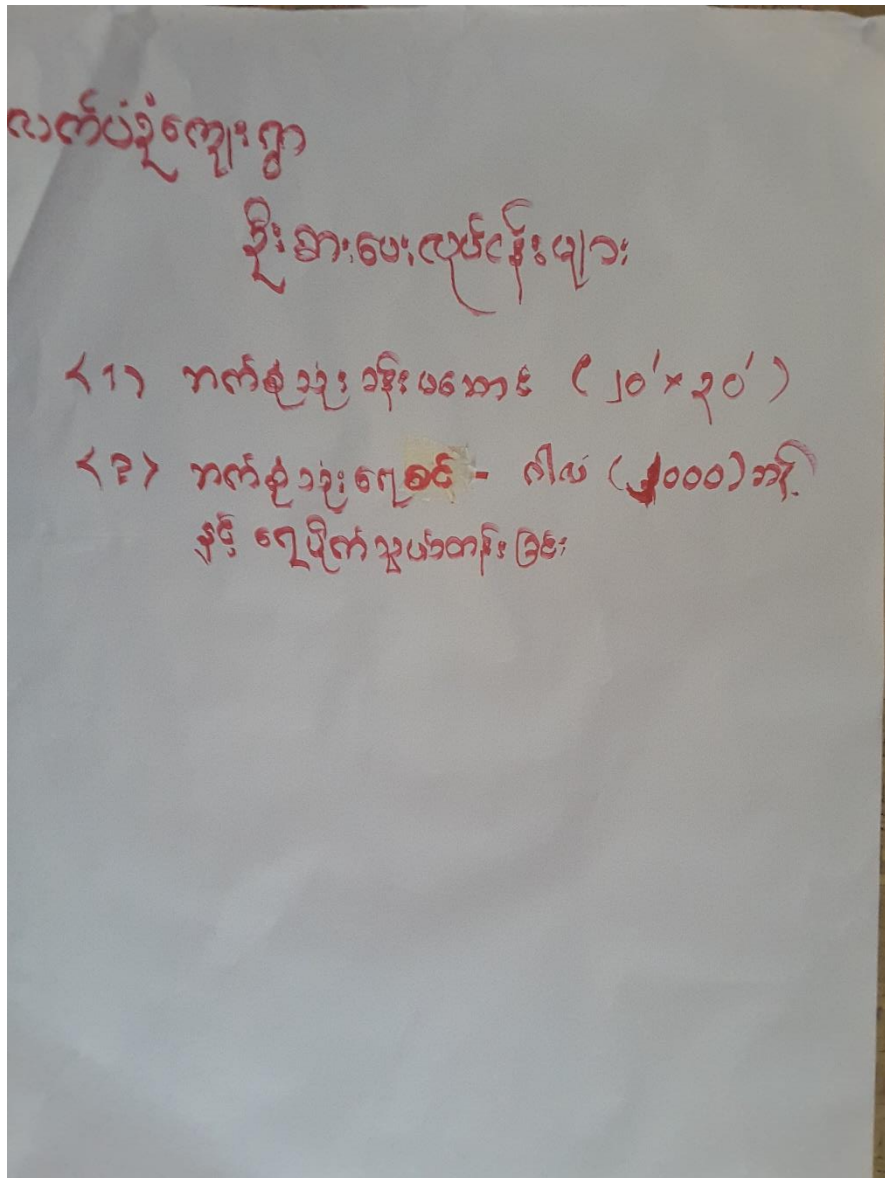 လက်ပံခုံကျေးရွာ
ဦးစားပေးလုပ်ငန်းများ
(၁) ဘက်စုံသုံးခန်းမဆောင် (၂၀'×၃၀')
(၂) ဘက်စုံသုံးရေစင် - ဂါလံ (၂၀၀၀) ဆန့်
နှင့် ရေပိုက်သွယ်တန်းခြင်း